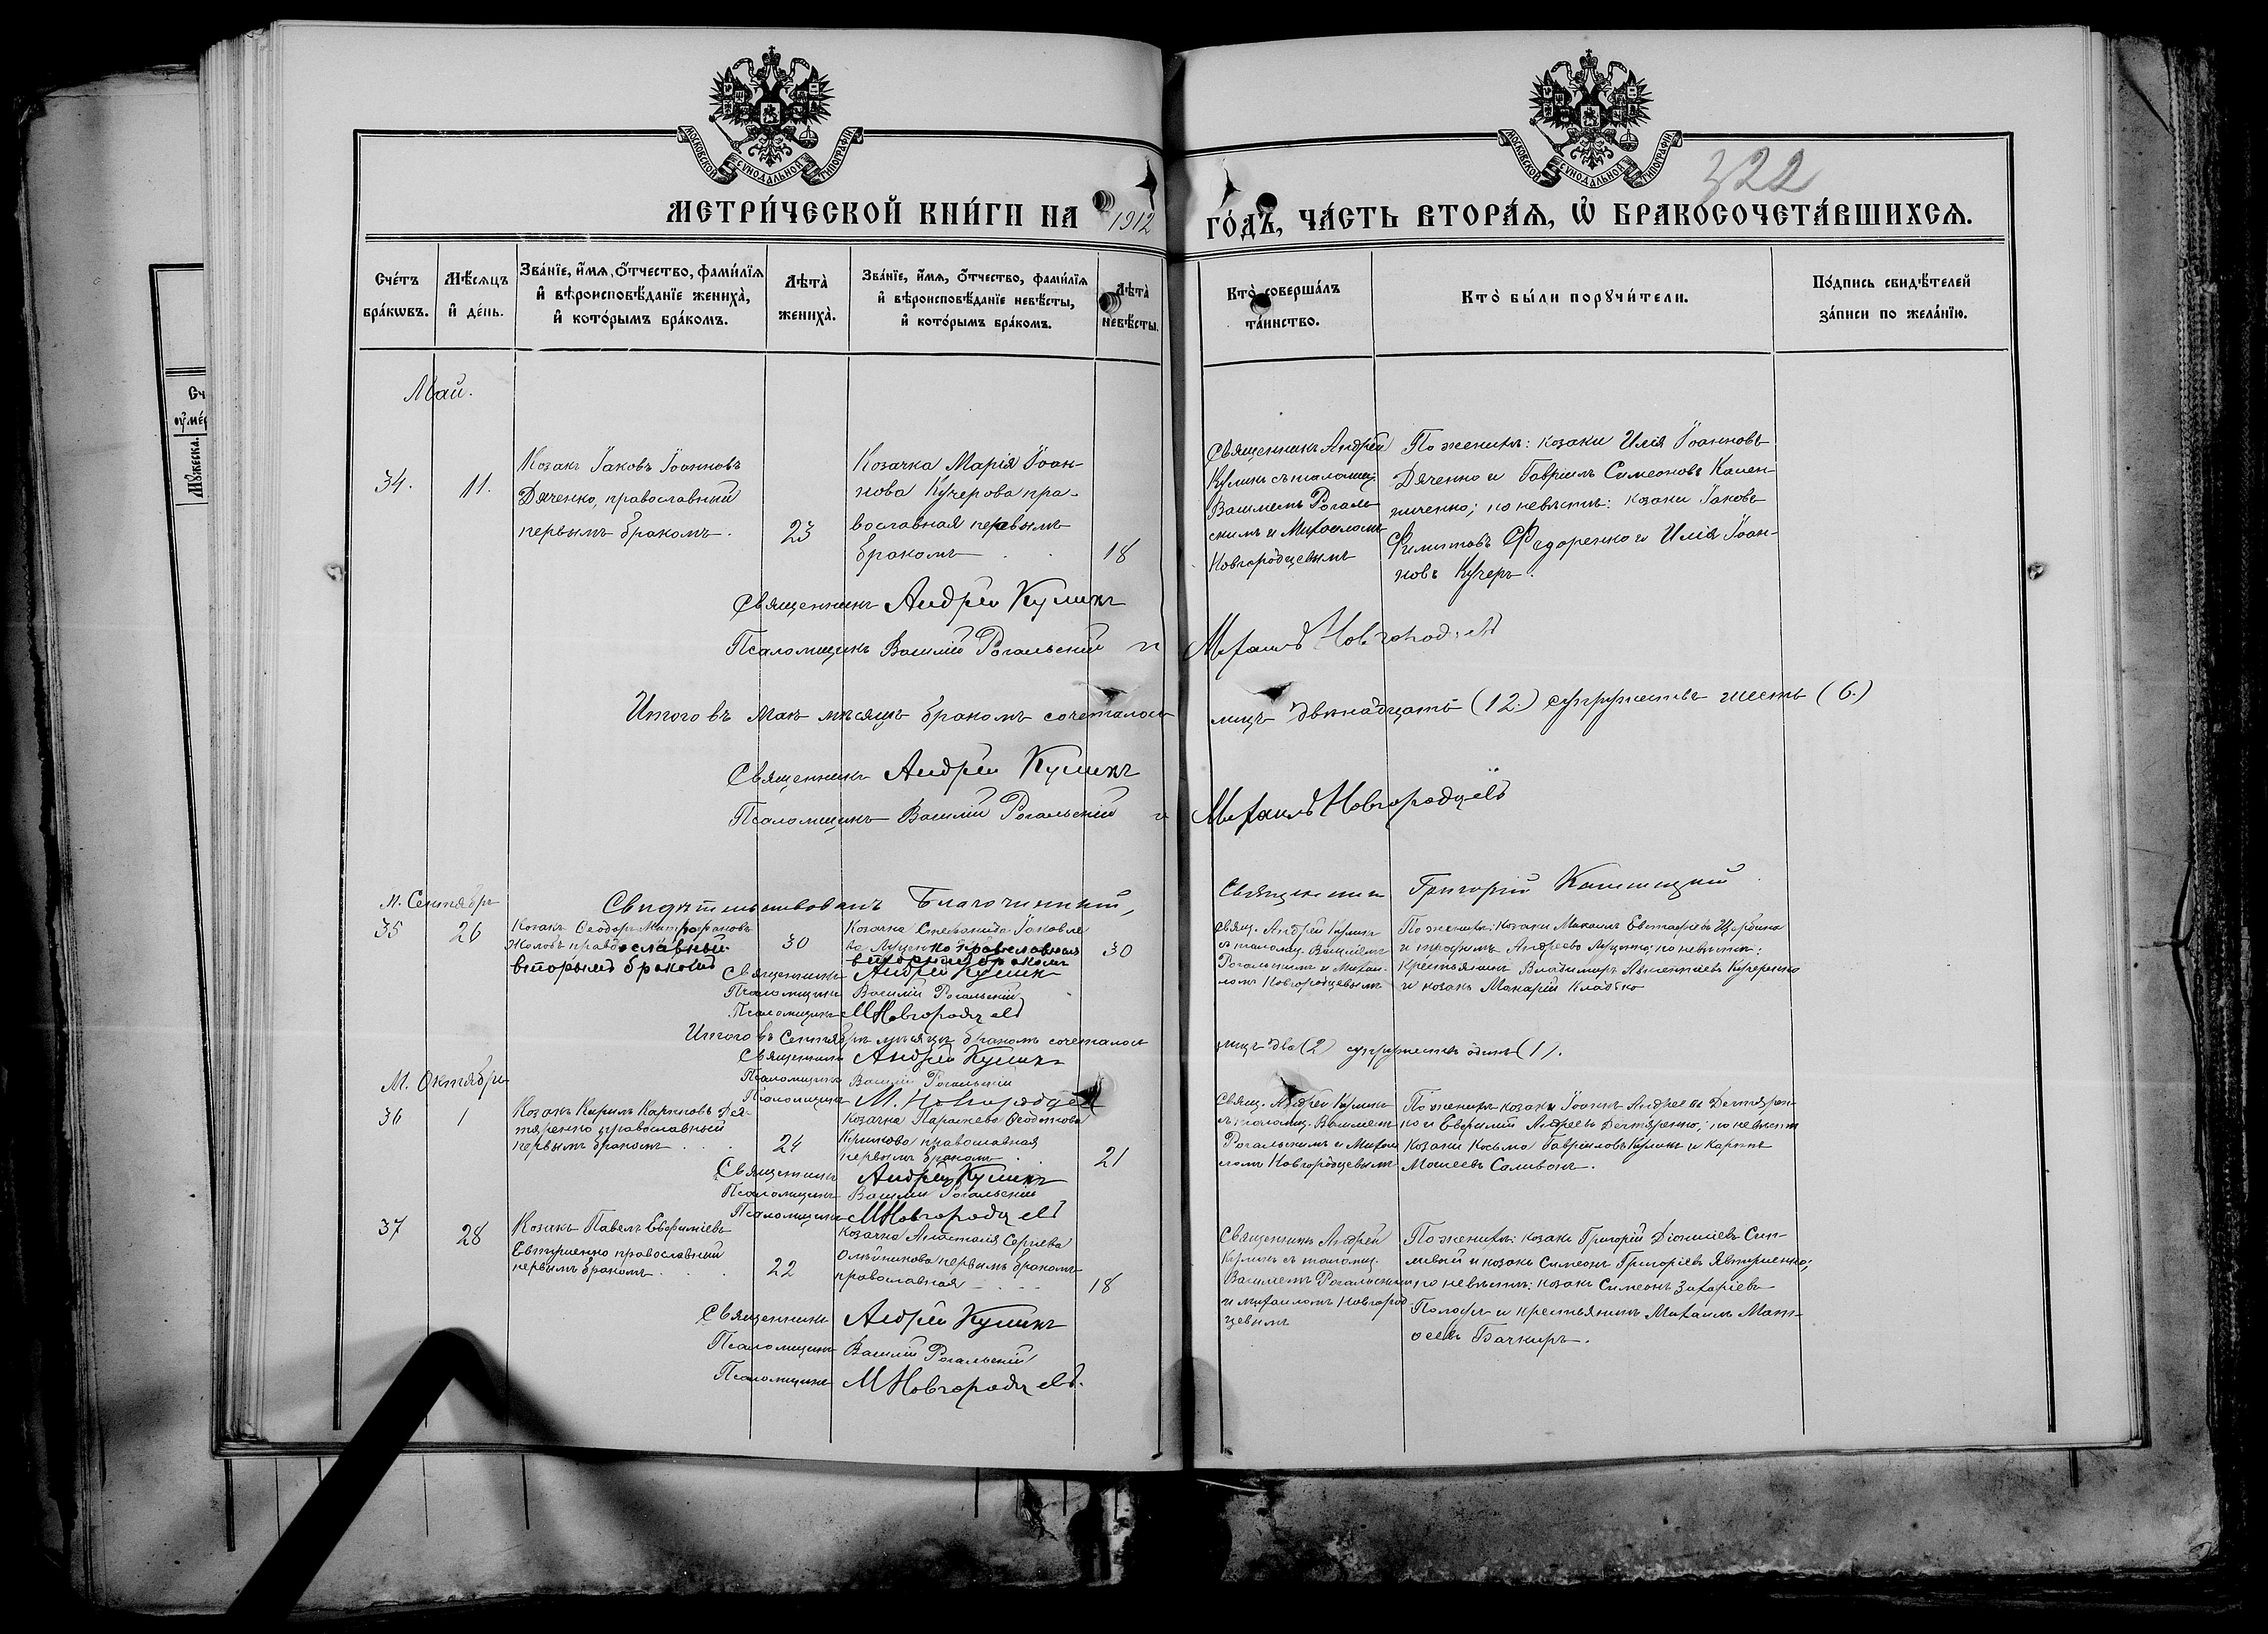 МОСКОВСКОЙ СѴНОДАЛЬНОЙ ТИПОГРАФІИ
МОСКОВСКОЙ СѴНОДАЛЬНОЙ ТИПОГРАФІИ
322
МЕТРИ́ЧЕСКОЙ КНИ́ГИ НА 1912 ГО́ДЪ, ЧА́СТЬ ВТОРА́Ѧ, Ѡ҆ БРАКОСОЧЕТА́ВШИХСѦ.
Сче́тъ бра́кѡвъ.
Мѣ́сѧцъ и҆ де́нь.
Зва́нїе, и҆́мѧ, ѻ҆́тчество, фами́лїѧ и҆ вѣроисповѣ́данїе жениха̀, и҆ кото́рымъ бра́комъ.
Лѣта̀ жениха̀.
Зва́нїе, и҆́мѧ, ѻ҆́тчество, фами́лїѧ и҆ вѣроисповѣ́данїе невѣ́сты, и҆ кото́рымъ бра́комъ.
Лѣта̀ невѣ́сты.
Кто̀ соверша́лъ та́инство.
Кто̀ бы́ли порꙋчи́тели.
По́дпись свидѣ́телей за́писи по жела́нїю.
Май.
34.
11.
Козакъ Іаковъ Іоанновъ
Дяченко, православный
первымъ бракомъ.
23
Козачка Марія Іоан-
нова Кучерова пра-
вославная первымъ
бракомъ
18
Священникъ Андрей
Куликъ съ псаломщ.
Василіемъ Рогаль-
скимъ и Михаиломъ
Новгородцевымъ
По женихѣ: козаки Илія Іоанновъ
Дяченко и Гавріилъ Симеоновъ Кален-
ниченко; по невѣстѣ: козаки Іаковъ
Филипповъ Федоренко и Илія Іоан-
новъ Кучеръ.
Священникъ Андрей Куликъ
Псаломщикъ Василій Рогальскій и Михаилъ Новгородцевъ
Итого въ Маѣ мѣсяцѣ бракомъ сочеталось лицъ двѣнадцать (12.) супружествъ шесть (6.)
Священникъ Андрей Куликъ
Псаломщикъ Василій Рогальскій и Михаилъ Новгородцевъ
Свидѣтельствовалъ Благочинный, Священникъ Григорій
М. Сентябрь
35
26
Козакъ Ѳеодоръ Митрофановъ
Жоловъ православный
вторымъ бракомъ
30
Козачка Стефанида Іаковле
ва Луценко православная
вторымъ бракомъ
30
Свящ. Андрей Куликъ
съ псаломщ. Василіемъ
Рогальскимъ и Михаи-
ломъ Новгородцевымъ
По женихѣ: козаки Михаилъ Евстафіевъ Щербина
и Трофимъ Андреевъ Луценко; по невѣстѣ:
крестьянинъ Владимиръ Авксентіевъ Кучеренко
и козакъ Макарій Кладько
Священникъ Андрей Куликъ
Псаломщикъ Василій Рогальскій
Псаломщикъ МНовгородцевъ
Итого въ Сентябрѣ мѣсяцѣ бракомъ сочеталось лицъ два (2) супружествъ одинъ (1).
Священникъ Андрей Куликъ
Псаломщикъ Василій Рогальскій
Псаломщикъ М. Новгородцевъ
М. Октябрь
36
1
Козакъ Кирилъ Карповъ Дег-
тяренко православный
первымъ бракомъ
24
Козачка Параскева Ѳеодотова
Крикова православная
первымъ бракомъ
21
Свящ. Андрей Куликъ
съ псаломщ. Василіемъ
Рогальскимъ и Михаи
ломъ Новгородцевымъ
По женихѣ козаки Іоаннъ Андреевъ Дегтярен-
ко и Евфимій Андреевъ Дегтяренко; по невѣстѣ
козаки Косьма Гавріиловъ Куликъ и Карпъ
Моисеевъ Саливонъ.
Священникъ Андрей Куликъ
Псаломщикъ Василій Рогальскій
Псаломщикъ МНовгородцевъ
37
28
Козакъ Павелъ Евфиміевъ
Евтушенко православный
первымъ бракомъ
22
Козачка Анастасія Сергіева
Олейникова первымъ бракомъ
православная
18
Священникъ Андрей
Куликъ съ псаломщ.
Василіемъ Рогальскимъ
и Михаиломъ Новгород-
цевымъ
По женихѣ: козакъ Григорій Діонисіевъ Сии-
ливый и козакъ Симеонъ Григоріевъ Явтушенко;
по невѣстѣ: козакъ Симеонъ Захаріевъ
и крестьянинъ Михаилъ Мат-
ѳеевъ Бачкиръ.
Священникъ Андрей Куликъ
Псаломщикъ Василій Рогальскій
Псаломщикъ МНовгородцевъ.